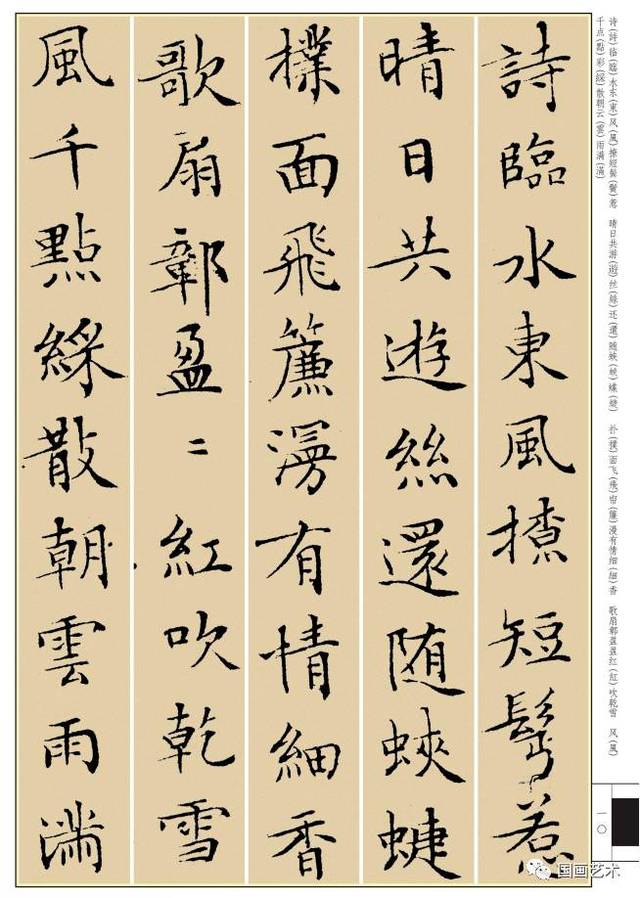 诗(詩)临(臨)水东(東)风(風)撩短鬓(鬢)惹　晴日共游(遊)丝(絲)还(還)随蛱(蛺)蝶(蜨)　扑(撲)面飞(飛)帘(簾)漫有情细(細)香　歌扇鄣盈盈红(紅)吹乾雪　风(風)
千点(點)彩(綵)散朝云(雲)雨满(滿)
詩臨水東風撩短鬢惹
晴日共遊絲還随蛺蜨
撲面飛簾漫有情細香
歌扇鄣盈〻紅吹乾雪
風千點綵散朝雲雨满
一〇
国画艺术